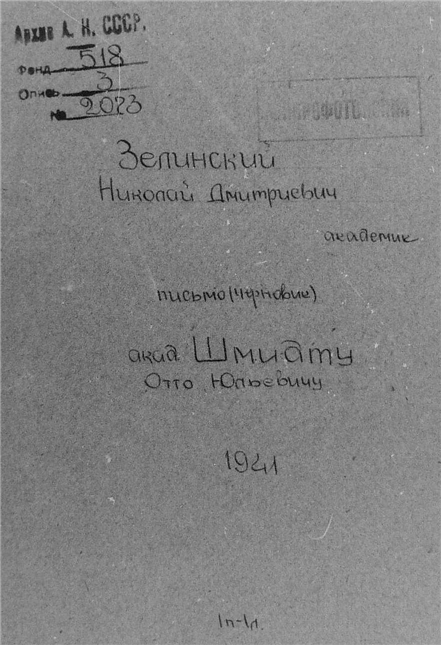 Архив А. Н. СССР.
Фонд 518
Опись 3
№ 2073
Зелинский
Николай Дмитриевич
академик
письмо (черновик)
акад Шмидту
Отто Юльевичу
1941
1п-1л.